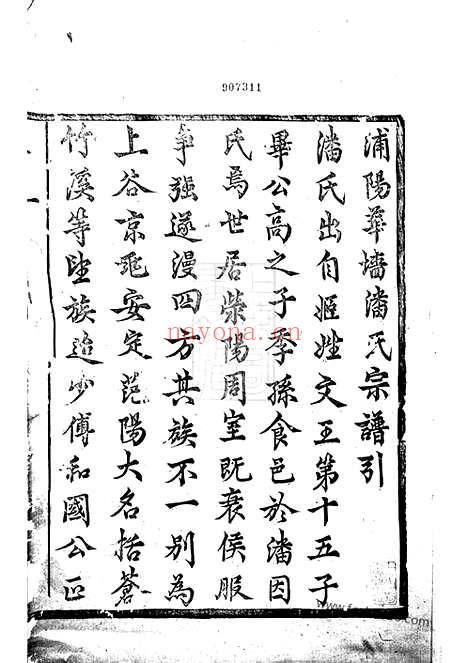 907311
浦陽華墻潘氏宗譜引
潘氏出自姬姓文王第十五子
畢公高之子季孫食邑於潘因
氏焉世居荥陽周室既衰侯服
爭强遂漫四方其族不一别為
上谷京兆安定范陽大名括蒼
竹溪等望族迨少傅和國公正
nayona.cn